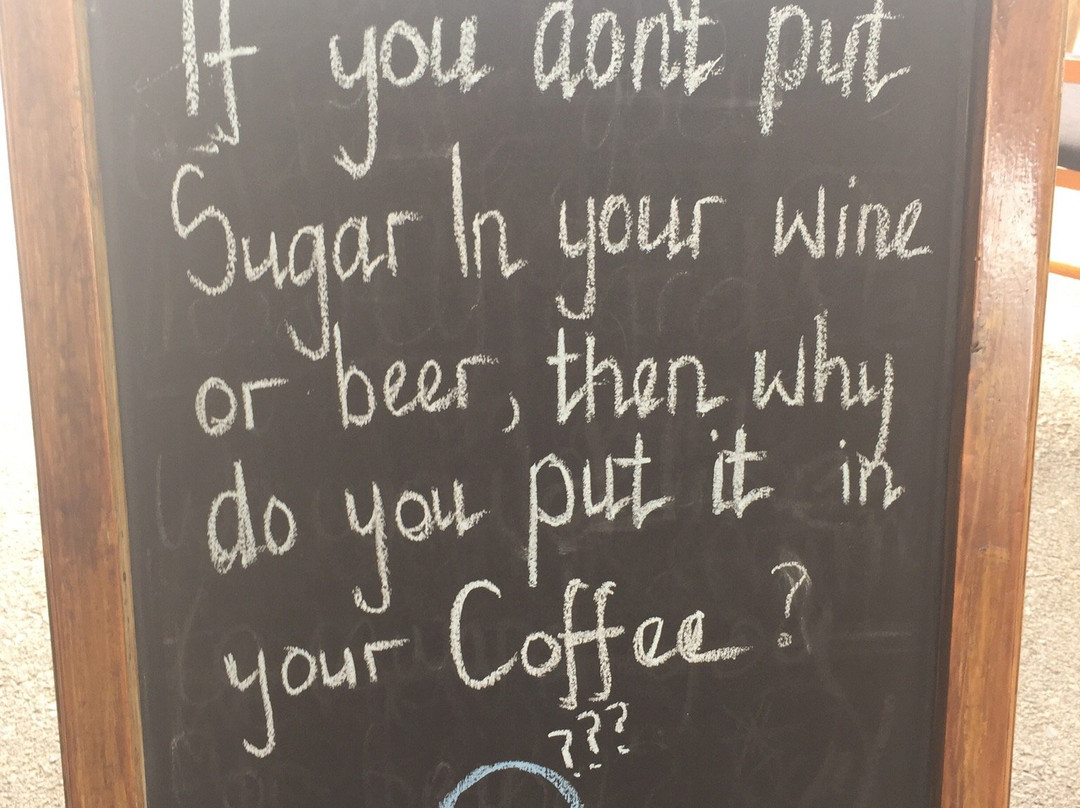 If you don't put
Sugar In your wine
or beer, then why
do you put it in
your Coffee ?
???